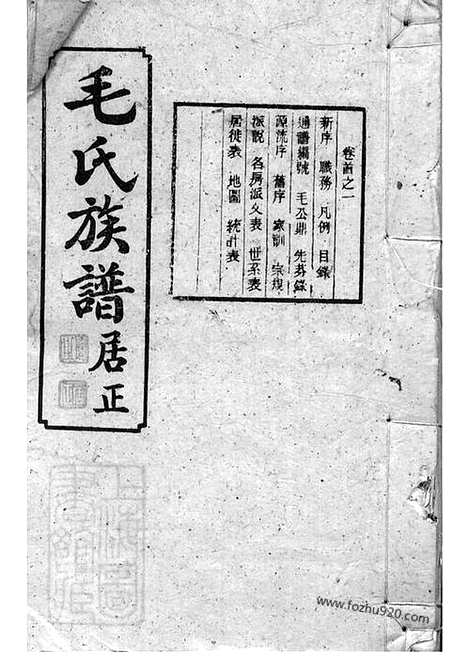 卷首之一
新序 職務 凡例 目錄
通譜編號 毛公鼎 先芬錄
源流序 舊序 家訓 宗規
派說 各房派文表 世系表
居徙表 地圖 統計表
毛氏族譜
居正
上海圖書館藏
www.fozhu920.com